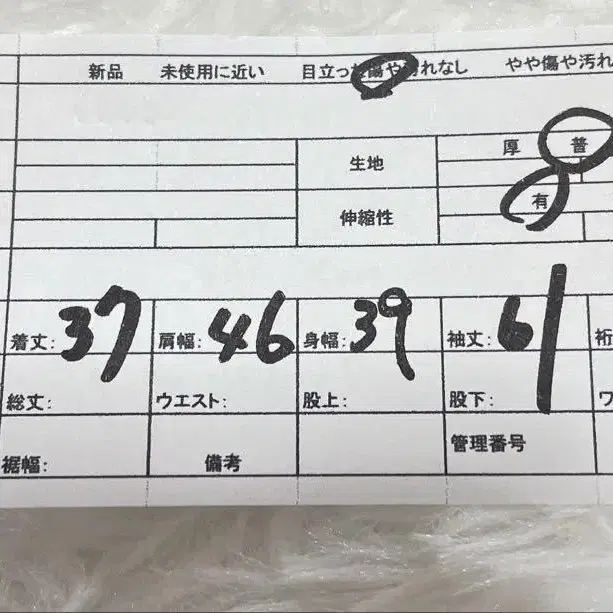 新品 未使用に近い 目立った傷や汚れなし やや傷や汚れ
生地 厚 普
伸縮性 有
着丈: 37 肩幅: 46 身幅: 39 袖丈: 61 裄
総丈: ウエスト: 股上: 股下: ワ
裾幅: 備考 管理番号